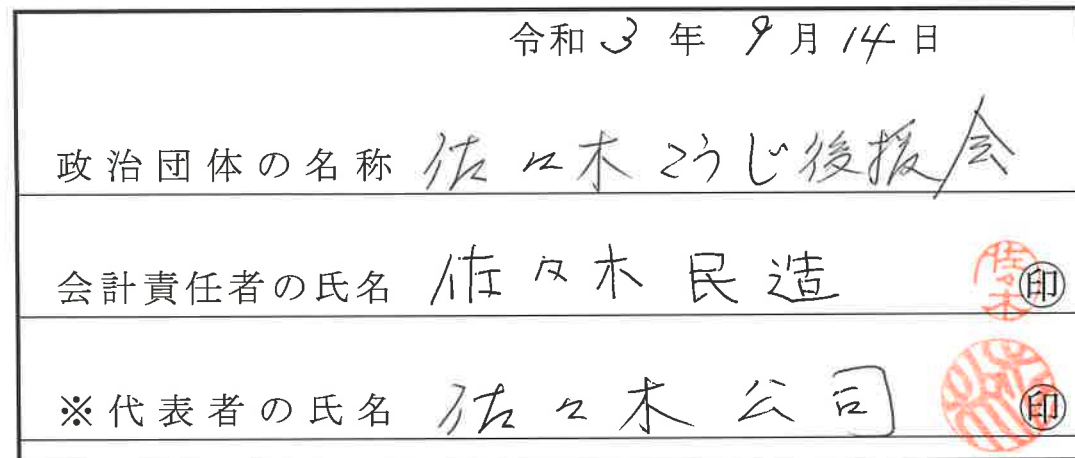 令和3年9月14日
政治団体の名称 佐々木こうじ後援会
会計責任者の氏名 佐々木民造 印
※代表者の氏名 佐々木公司 印